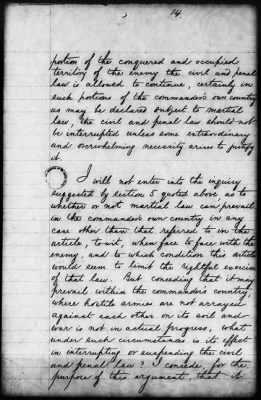 14.
portion of the conquered and occupied
territory of the enemy the civil and penal
law is allowed to continue, certainly in
such portions of the commander's own country
as may be declared subject to martial
law, the civil and penal law should not
be interrupted unless some extraordinary
and overwhelming necessity arise to justify
it.
I will not enter into the inquiry
suggested by section 5 quoted above as to
whether or not martial law can prevail
in the commander's own country in any
case other than that referred to in the
article, to wit, when face to face with the
enemy, and to which condition this article
would seem to limit the rightful exercise
of that law. But conceding that it may
prevail within the commander's country,
where hostile armies are not arrayed
against each other on its soil and
war is not in actual progress, what
under such circumstances is its effect
in interrupting or suspending the civil
and penal law? I concede, for the
purpose of this argument, that it